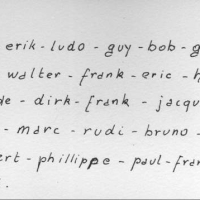 erik - ludo - guy - bob - g
walter - frank - eric - h
de - dirk - frank - jacqu
- marc - rudi - bruno -
ert - phillippe - paul - fran